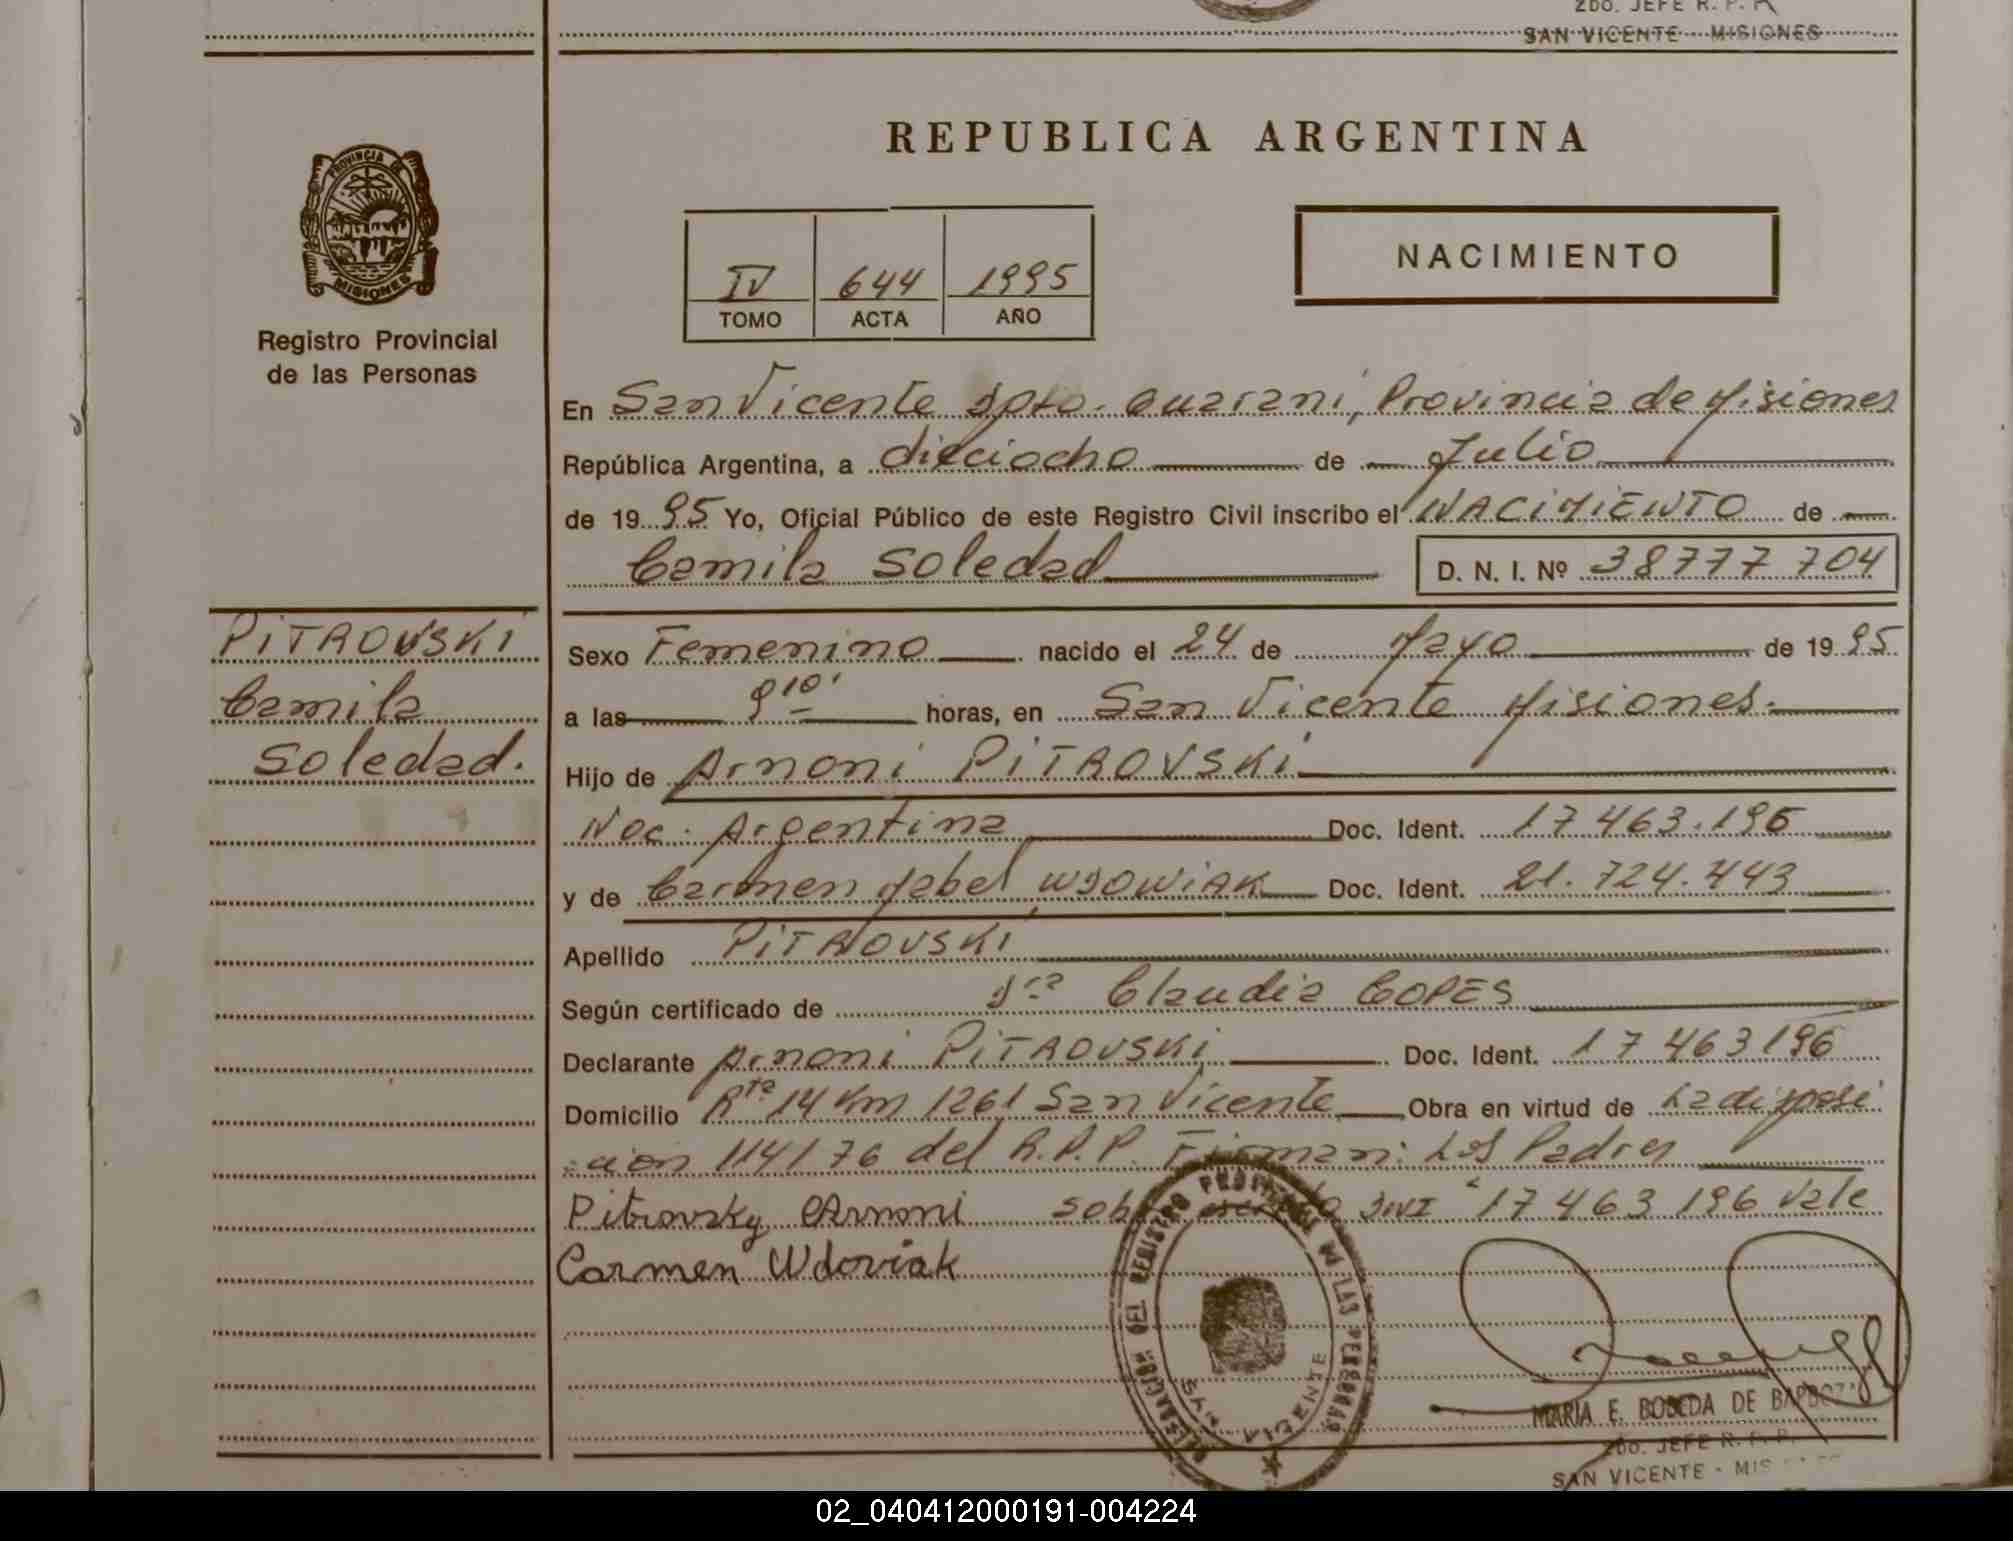 2DO. JEFE R. P. P.
SAN VICENTE - MISIONES
REPUBLICA ARGENTINA
PROVINCIA DE MISIONES
Registro Provincial
de las Personas
IV 644 1995
TOMO ACTA AÑO
NACIMIENTO
En San Vicente Dpto. Guarani, Provincia de Misiones
República Argentina, a dieciocho de Julio
de 1995 Yo, Oficial Público de este Registro Civil inscribo el NACIMIENTO de
Camila Soledad D. N. I. Nº 38777 704
PiTROVSKi
Camila
Soledad.
Sexo Femenino nacido el 24 de Mayo de 1995
a las 9 10' horas, en San Vicente Misiones.
Hijo de Arnoni PiTROVSKi
Nac. Argentina Doc. Ident. 17 463.196
y de Carmen Mabel WDOWiAK Doc. Ident. 21.724.443
Apellido PiTROVSKi
Según certificado de Dra Claudia COPES
Declarante Arnoni PiTROVSKi Doc. Ident. 17 463 196
Domicilio Rta 14 Km 1261 San Vicente Obra en virtud de La disposi
cion 114/76 del R.P.P. Firman: Los Padres
Pitrovsky Arnoni Sob 17 463 196 Vale
Carmen Wdoviak
DELEGACION DEL REGISTRO PROVINCIAL DE LAS PERSONAS
SAN VICENTE
MARIA E. BOBEDA DE BARBOZA
2DO. JEFE R. P. P.
SAN VICENTE - MIS
02_040412000191-004224